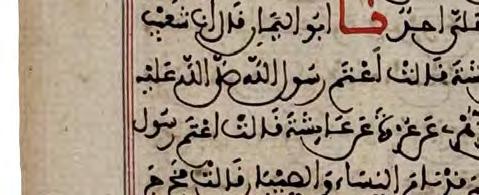 نا ابو اليمان قال انا شعيب
يشة قالت اعتم رسول الله صلى الله عليه
عن عايشة قالت اعتم رسول
نام النساء والصبيان فخرج